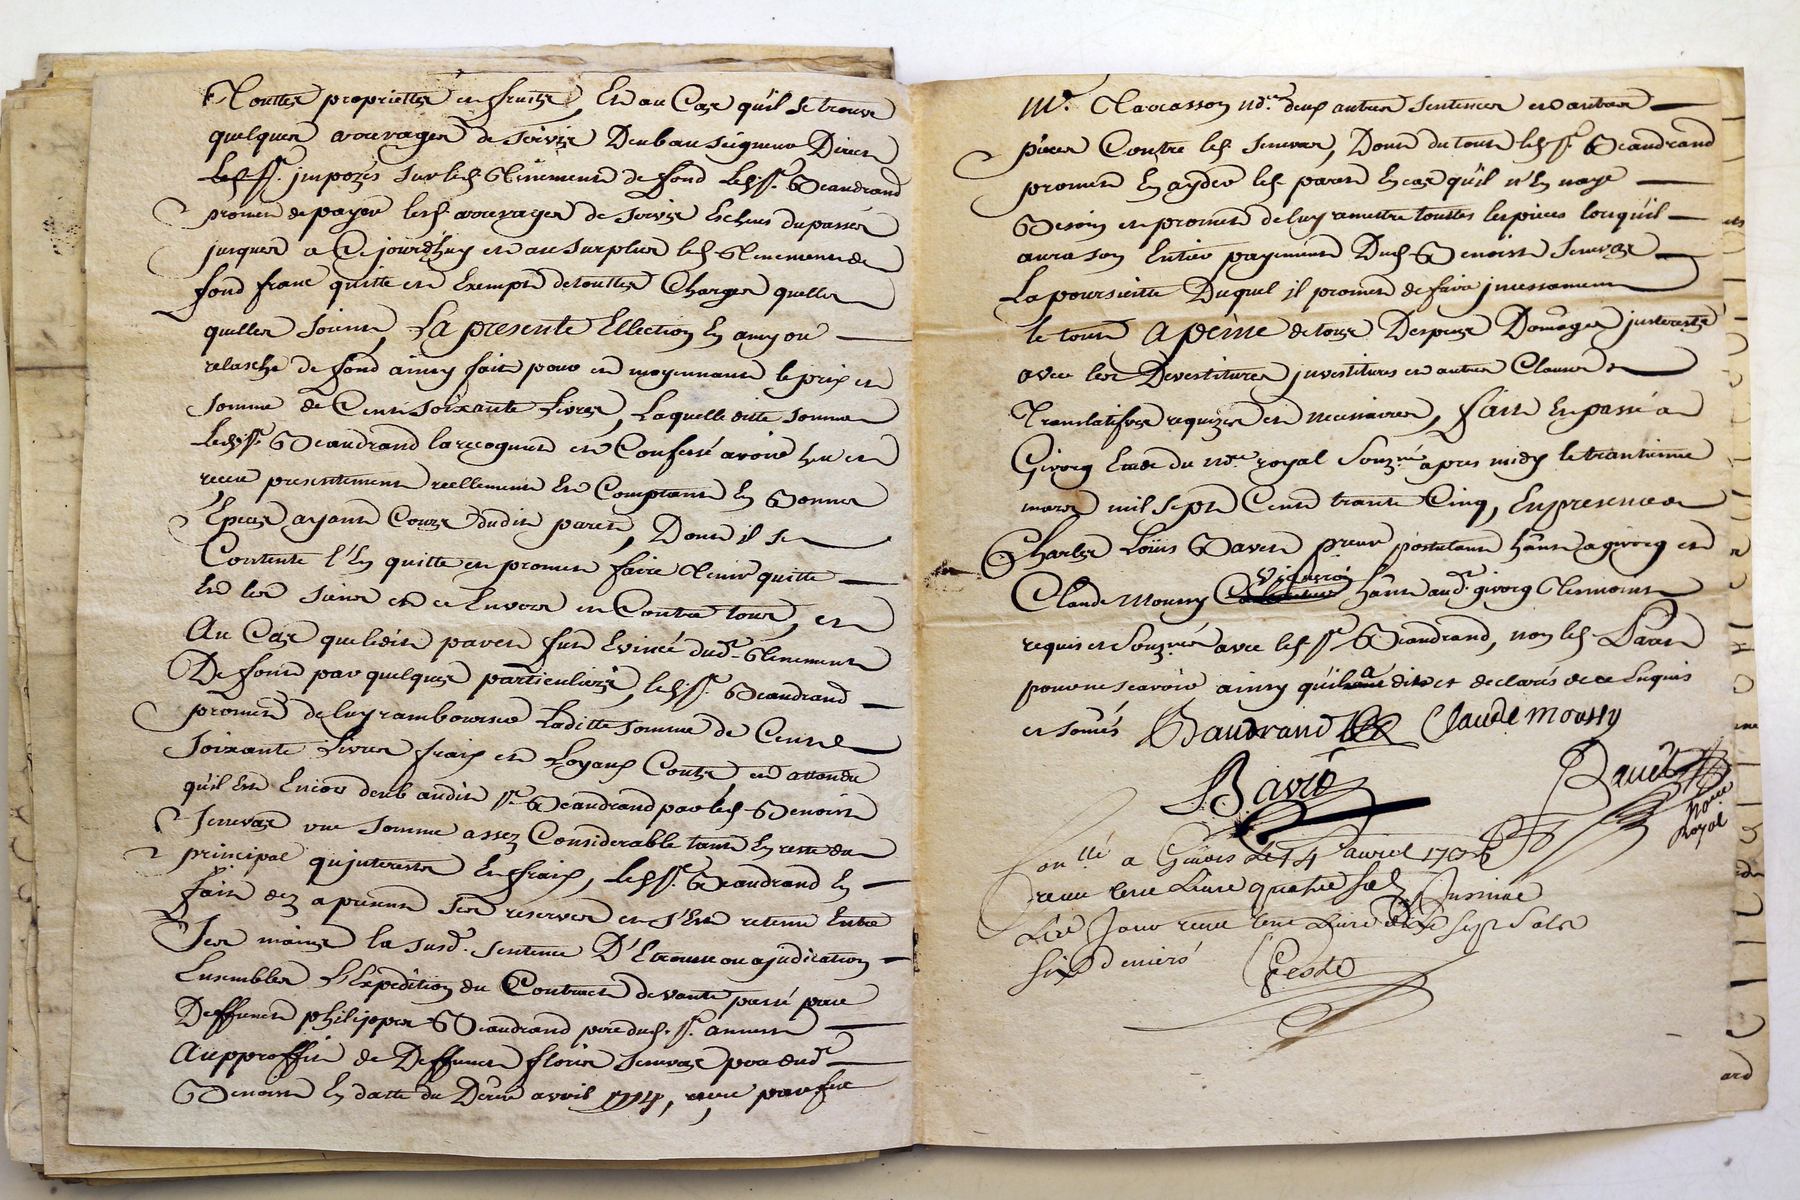 Touttes propriettes et fruits, Et au Cas qu'il se trouve
quelques arreyrages de servis Deub au seigneur Direct
Led. Sr. jmpozés sur led. Tenement de fond Led. Sr. Beaudrand
promet de payer lesd. arreyrages de servis Echeus du passé
jusques a Ce jourd'huy et au surplus led. Tenement de
fond franc quitte et Exempt de touttes Charges quelles
quelles soient, La presente Ellection En amy ou
relasche de fond ainsy fait pour et moyennant le prix et
somme de Cent soixante Livres, Laquelle ditte somme
Led. Sr. Beaudrand la recognu et Confessé avoir heu et
receu presentement reellement Et Comptant En Bonnes
Espece ayant Cours dudit paret, Dont il se
Contente l'En quitte et promet faire Tenir quitte
Et les siens et ce Envers et Contre tous, et
Au Cas que ledit paret fut Evincé dud. Tenement
De fond par quelques particuliers, led. Sr. Beaudrand
promet de luy rambourser Laditte somme de Cent
soixante Livres fraix et Loyaux Couts et attendu
qu'il Est Encor deub audit Sr. Beaudrand par led. Benoist
Jenevas une somme assez Considerable tant En reste du
principal qu'jnterests En fraix, led. Sr. Beaudrand En
fait dez a present ses reserves et s'Est retenu Entre
Ses mains la susd. sentence D'Etrousse ou ajudication
Ensembles L'Expedition du Contract de vante passé par
Deffunct philippes Beaudrand pere dud. Sr. 
Au proffit de Deffunct floris Jenevas pere dud.
Benoist En datte du avril 1714, receu par feu
Me. nore. deux autres sentences et autres
pieces Contre led. Jenevas, Dont du tout led. Sr. Beaudrand
promet En ayder led. paret En cas qu'il n'En naye
Besoin et promet de luy remettre touttes les pieces lorsqu'il
aura son Entier payement Dud. Benoist Jenevas
La poursuitte Duquel il promet de faire jncessament
le tout A peine de tous Despens Domages jnterests
avec les Devestitures jnvestitures et autres Clauses
Translatifves requizes et necessaires, fait Et passé a
Givors Etude du nore. royal Souzné. apres midy le trantieme
mars mil sept Cent trante Cinq, En presence de
Charles Loüis Bavet preur postulant hânt a givors et
Claude moussy Vigneron hânt aud. givors Tesmoins
requis et souznés avec led. Sr. Beaudrand, non led. Paret
pour ne scavoir ainsy qu'il a dit et declaré de ce Enquis
et somés Baudrand Claude moussy
Bavet
notre
Royal
Conllé a Givors le 14 avril 1735
receu une Livre quatre sols
receu une Livre Sept Sols
Six deniers